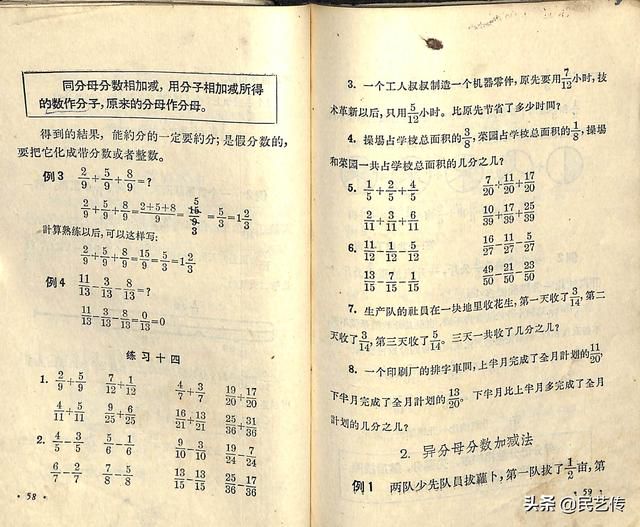 同分母分数相加减，用分子相加减所得
的数作分子，原来的分母作分母。
得到的結果，能約分的一定要約分；是假分数的，
要把它化成带分数或者整数。
例3 2/9+5/9+8/9=?
2/9+5/9+8/9=(2+5+8)/9=15/9=5/3=1 2/3
計算熟练以后，可以这样写：
2/9+5/9+8/9=15/9=5/3=1 2/3
例4 11/13-3/13-8/13=?
11/13-3/13-8/13=0/13=0
练习十四
1. 2/9+5/9 7/12+1/12 4/7+3/7 19/20+17/20
4/11+5/11 9/25+6/25 16/21+13/21 25/36+31/36
2. 4/5-3/5 5/6-1/6 9/10-3/10 19/24-7/24
6/7-2/7 7/8-5/8 13/15-8/15 25/36-17/36
·58·
3. 一个工人叔叔制造一个机器零件，原先要用7/12小时，技
术革新以后，只用5/12小时。比原先节省了多少时間？
4. 操場占学校总面积的3/8，菜园占学校总面积的1/8，操場
和菜园一共占学校总面积的几分之几？
5. 1/5+2/5+4/5 7/20+11/20+17/20
2/11+3/11+6/11 10/39+17/39+25/39
6. 11/12-1/12-5/12 16/27-11/27-5/27
13/15-7/15-1/15 49/50-21/50-23/50
7. 生产队的社员在一块地里收花生，第一天收了3/14，第二
天收了3/14，第三天收了5/14。三天一共收了几分之几？
8. 一个印刷厂的排字車間，上半月完成了全月計划的11/20，
下半月完成了全月計划的13/20。下半月比上半月多完成了全月
計划的几分之几？
2. 异分母分数加减法
例1 两队少先队员拔蘿卜，第一队拔了1/2亩，第
·59·
头条 @民艺传